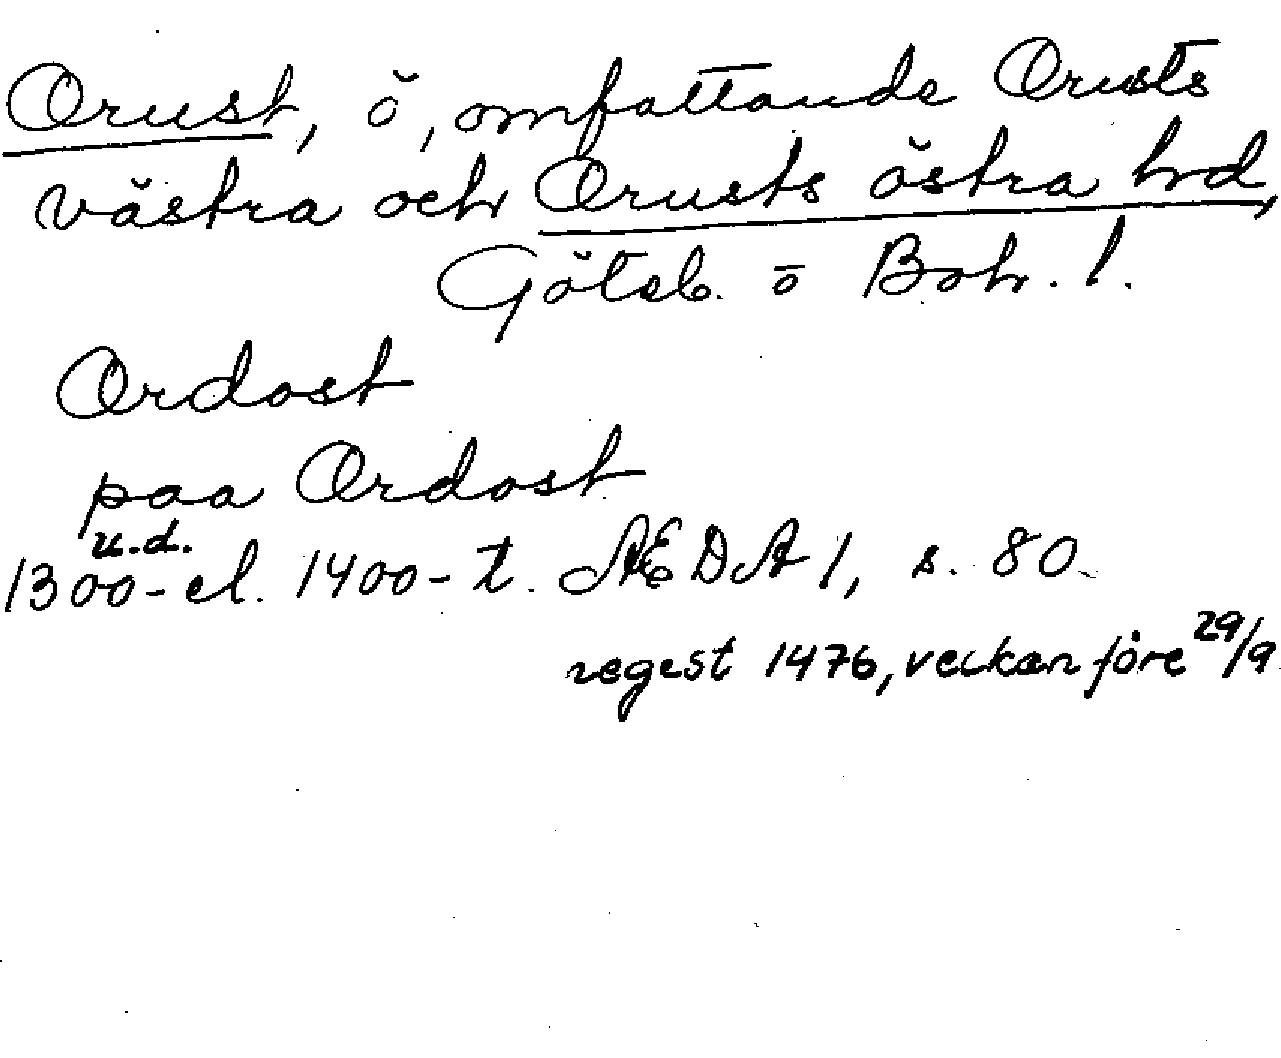 Orust, ö, omfattande Orusts
västra och Orusts östra hd,
Göteb. o Boh. l.
Ordost
paa Ordost
u.d.
1300- el. 1400-t. ÆDA 1, s. 80.
regest 1476, veckan före 29/9